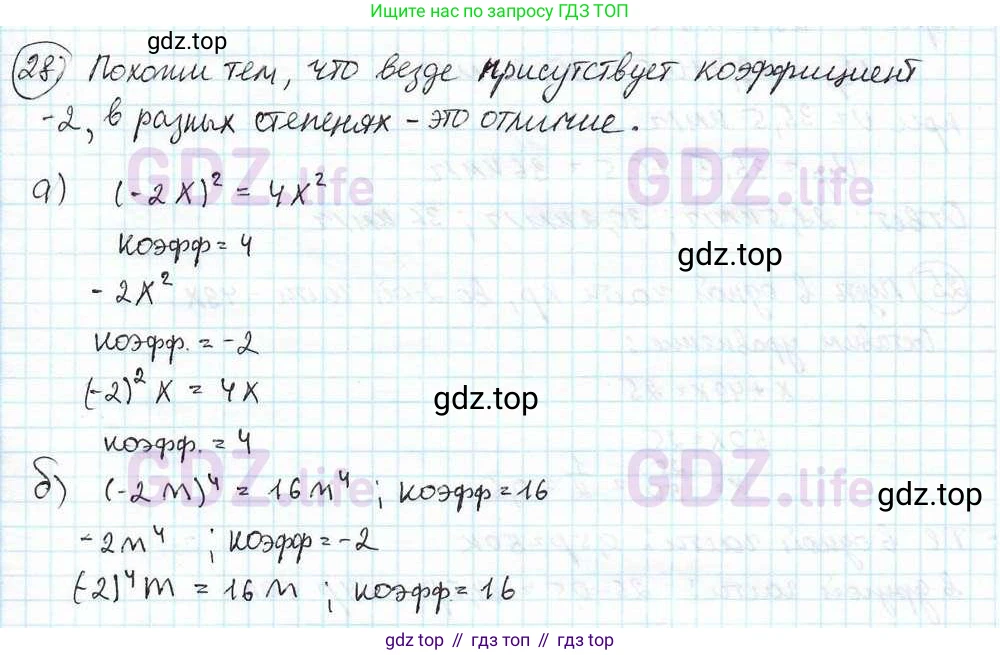 Ищите нас по запросу ГДЗ ТОП
gdz.top
28) Похожи тем, что везде присутствует коэффициент
-2, в разных степенях - это отличие.
GDZ.life GDZ.life
а) (-2x)² = 4x²
коэфф = 4
gdz.top
- 2x²
коэфф. = -2
(-2)² x = 4x
gdz.top
коэфф. = 4
GDZ.life GDZ.life
б) (-2m)⁴ = 16m⁴ ; коэфф = 16
gdz.top
- 2m⁴ ; коэфф = -2
(-2)⁴m = 16m ; коэфф = 16
gdz.top // гдз топ // gdz.top